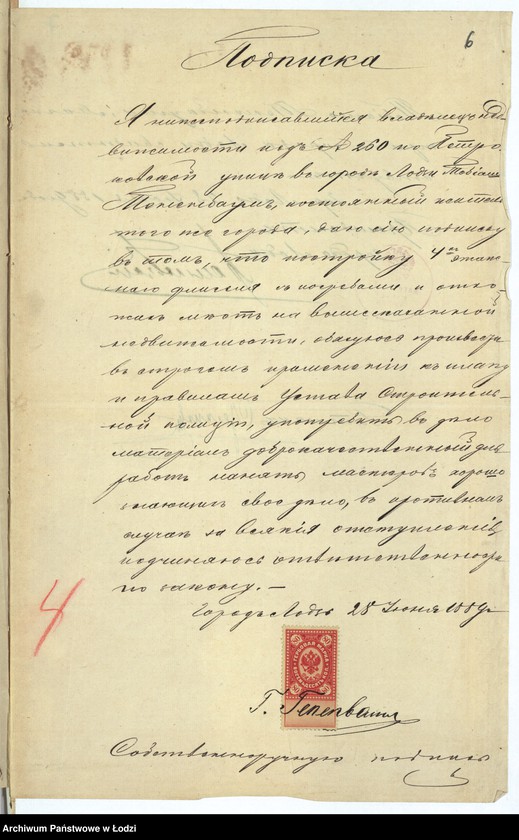 6
Подписка
Я нижеподписавшійся владѣлецъ не-
движимости подъ № 260 по Петро-
ковской улицѣ въ городѣ Лодзи
постоянный житель
того же города, даю сію подписку
въ томъ, что постройку 4хъ этаж-
наго флигеля съ погребами и отхо-
жихъ мѣстъ на вышесказанной
недвижимости, обязуюсь произвести
въ строгомъ примѣненіи къ плану
и правиламъ Устава Строитель-
ной полиціи, употребить въ дѣло
матеріалъ доброкачественный, для
работъ нанять мастеровъ хорошо
знающихъ свое дѣло, въ противномъ
случаѣ за всякія отступленія,
подчиняюсь отвѣтственности
по закону. —
Городъ Лодзь 28 Іюня 1889 г.
80 80
80 80
4
Собственноручную подпись
Archiwum Państwowe w Łodzi